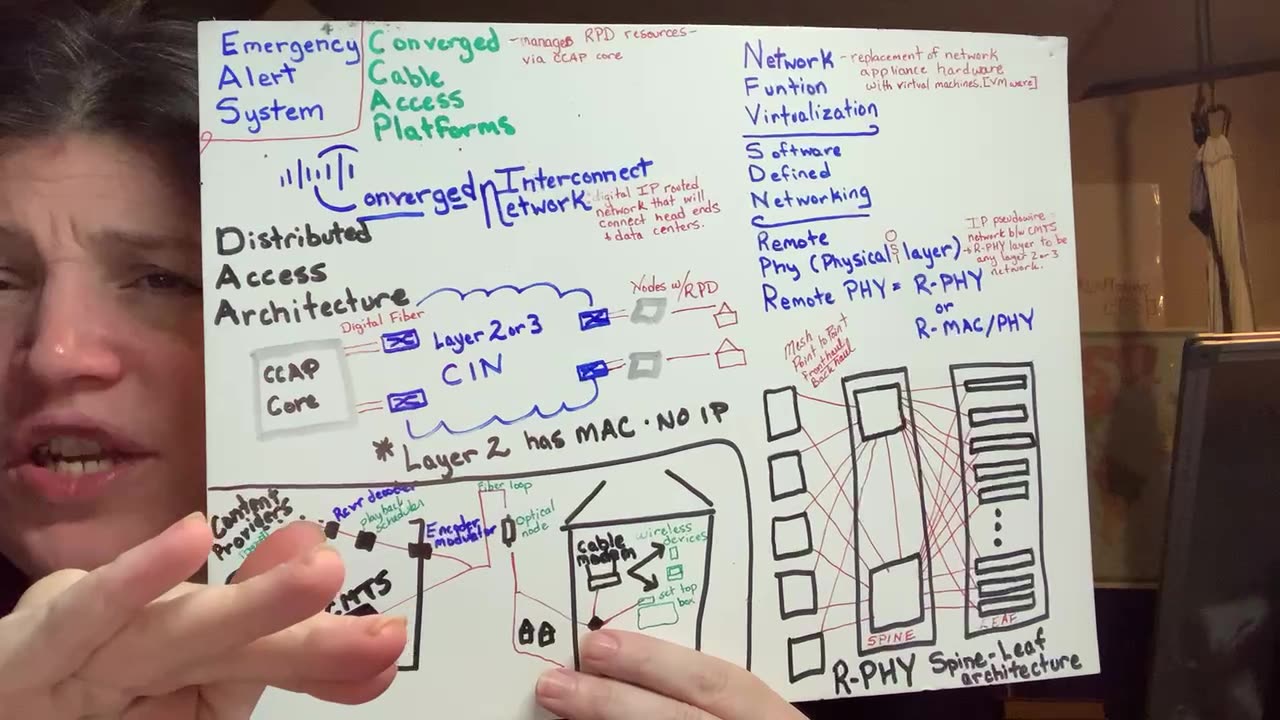 Emergency
Alert
System
Converged
Cable
Access
Platforms
-manages RPD resources-
via CCAP core
Converged Interconnect
Network
digital IP rooted
network that will
connect head ends
+ data centers.
Distributed
Access
Architecture
Digital Fiber
CCAP
Core
Layer 2 or 3
CIN
Nodes w/RPD
* Layer 2 has MAC · NO IP
Content
Providers
Rcvr decoder
playback
scheduler
Encoder
modulator
CMTS
Fiber loop
Optical
node
cable
modem
wireless
devices
set top
box
Network
Funtion
Virtualization
- replacement of network
appliance hardware
with virtual machines.[VMware]
Software
Defined
Networking
Remote
Phy (Physical layer)
OSI
IP pseudowire
network b/w CMTS
+ R-PHY layer to be
any layer 2 or 3
network.
Remote PHY = R-PHY
or
R-MAC/PHY
Mesh
Point to Point
Fronthaul
Backhaul
SPINE
LEAF
R-PHY Spine-Leaf
architecture